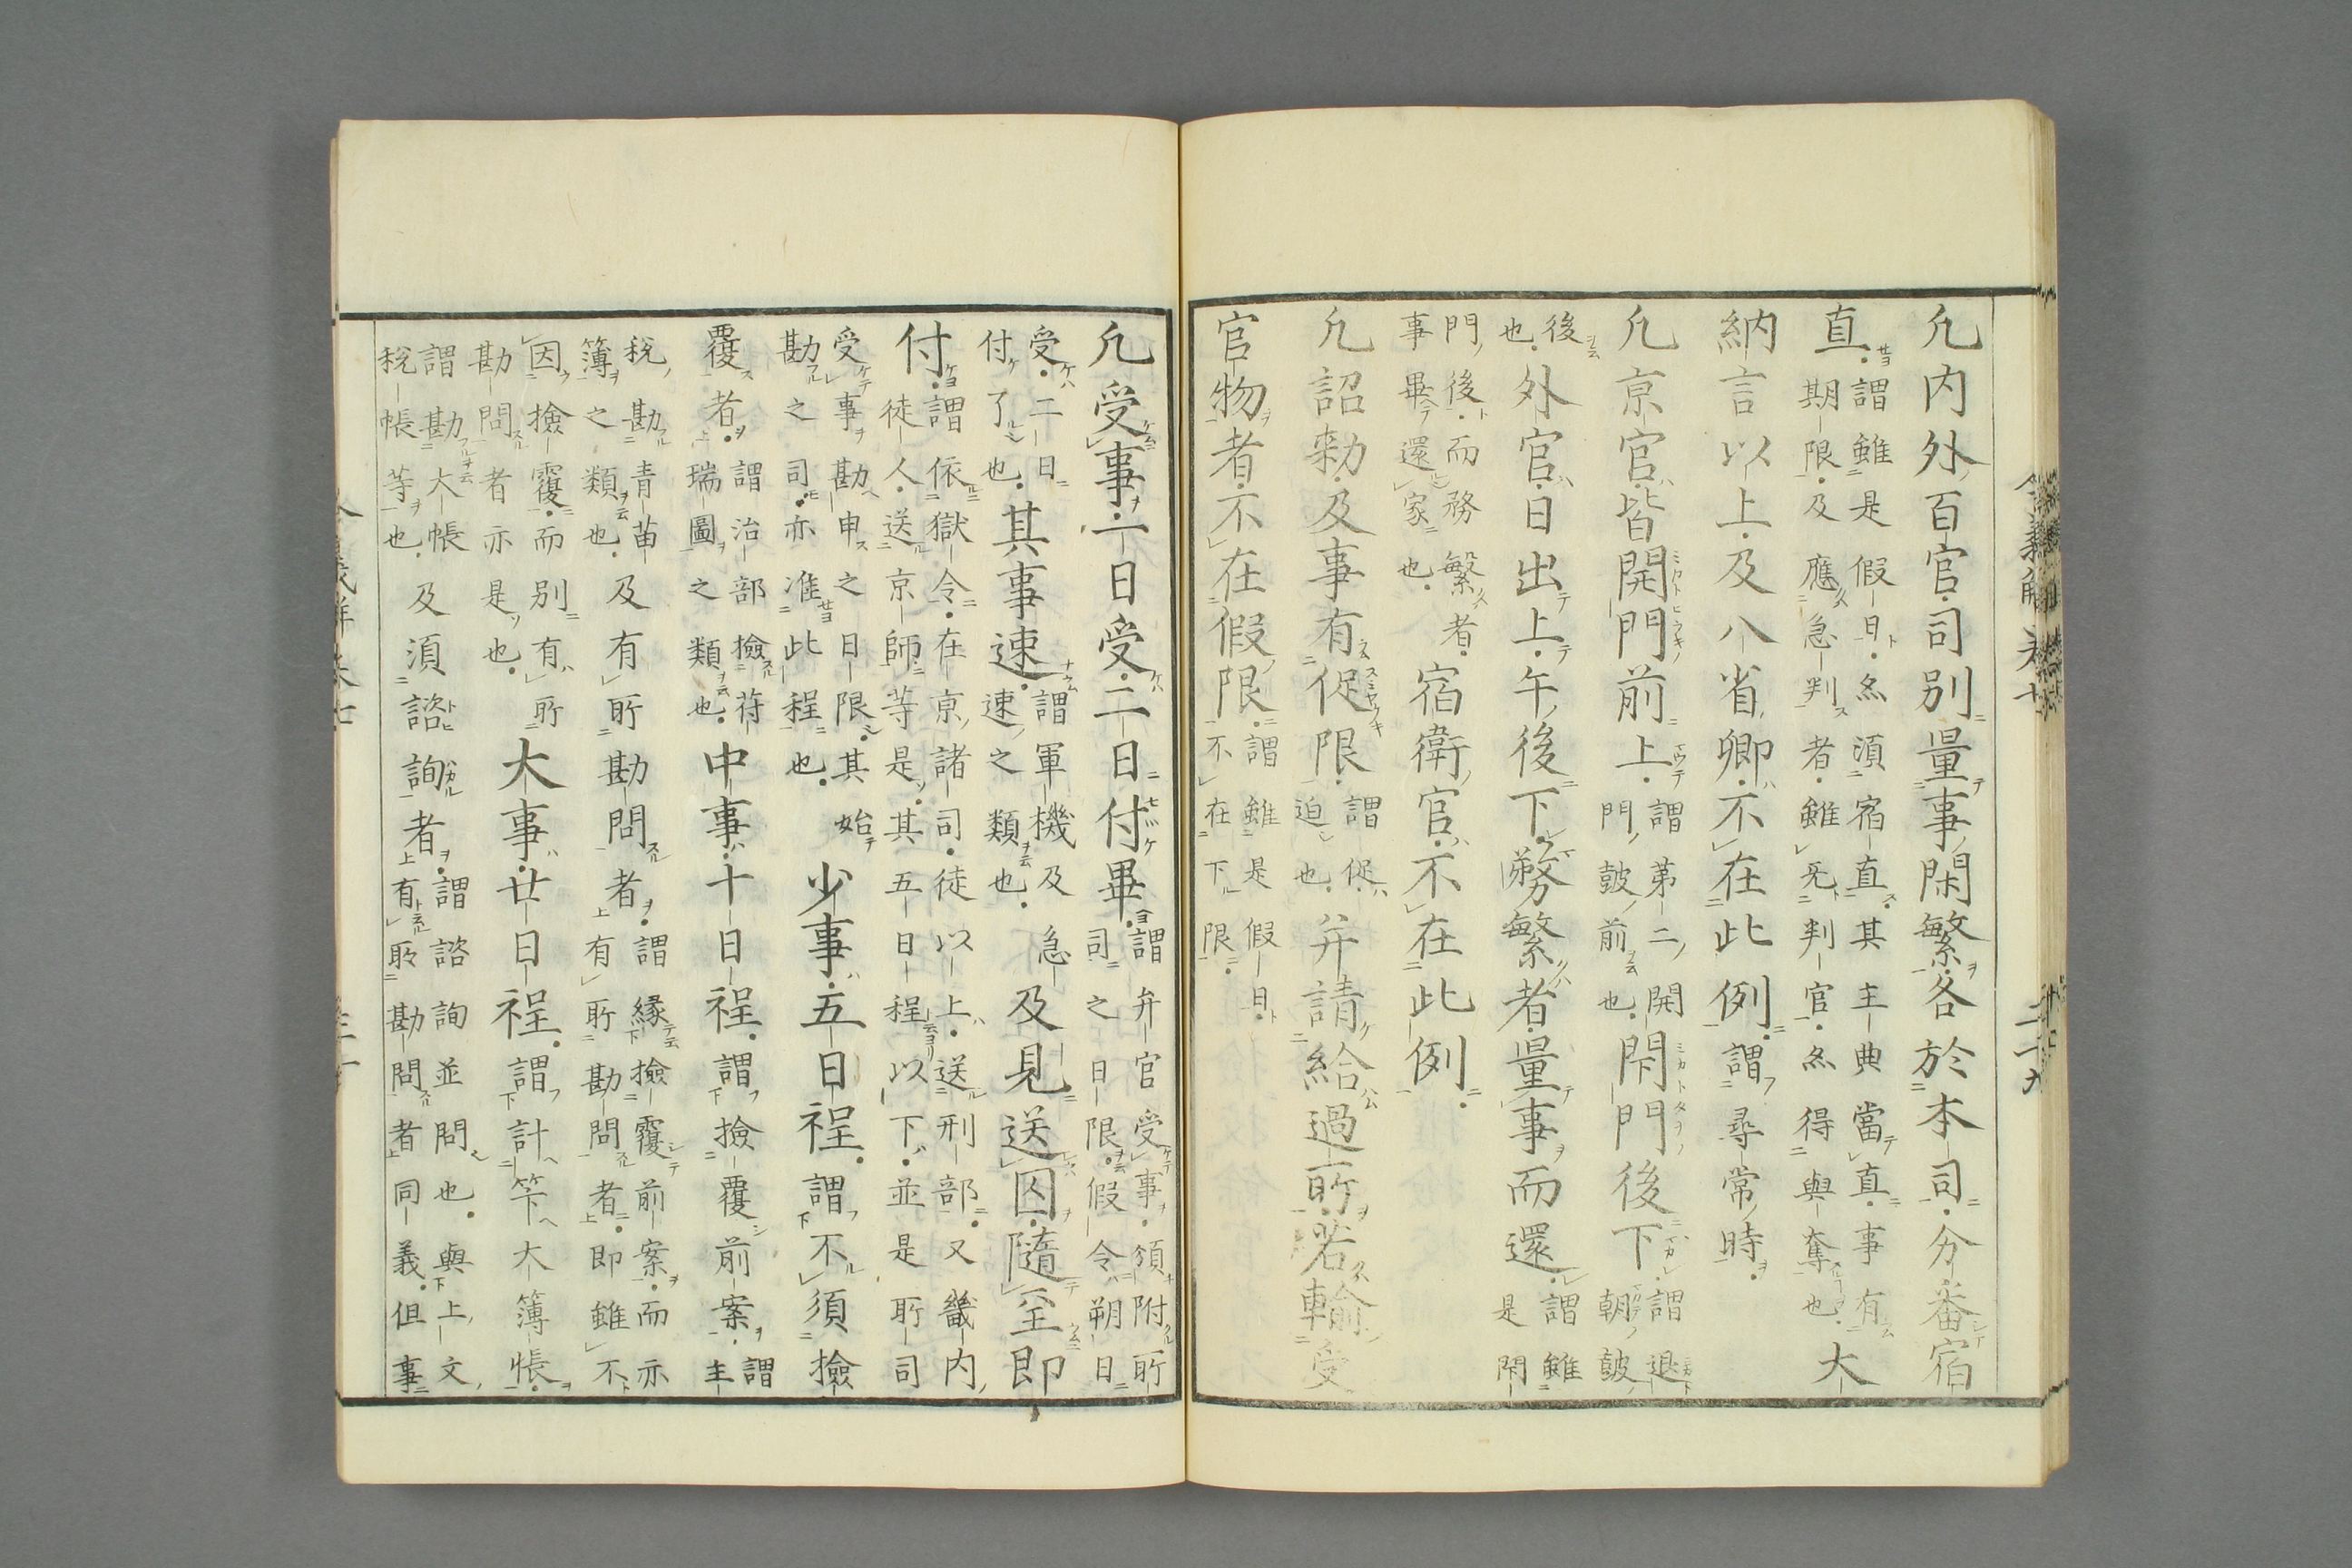 凡内外百官司別量事閑繁各於本司分番宿
直謂雖是假日亦須宿直其主典當直事有期限及應急判者雖无判官亦得與奪也大
納言以上及八省卿不在此例謂尋常時
凡京官皆開門前上謂第二開門皷前也閇門後下謂退朝皷
後也外官日出上午後下務繁者量事而還謂雖是閇
門後而務繁者事畢還家也宿衛官不在此例
凡詔勅及事有促限謂促迫也并請給過所若輸受
官物者不在假限謂雖是假日不在下限
凡受事一日受二日付畢謂弁官受事領附所司之日限假令朔日
受二日付了也其事速謂軍機及急速之類也及見送囚隨至即
付謂依獄令在京諸司徒以上送刑部又畿内徒人送京師等是其五日程以下並是所司
受事勘申之日限其始勘之司亦准此程也少事五日程謂不須撿
覆者謂治部撿苻瑞圖之類也中事十日程謂撿覆前案謂主
税勘青苗簿之類也及有所勘問者謂縁撿覆前案而亦有所勘問者即雖不
因撿覆而別有所勘問者亦是也大事廿日程謂計竿大簿帳
謂勘大帳税帳等也及須諮詢者謂諮詢並問也與上文有所勘問者同義但事